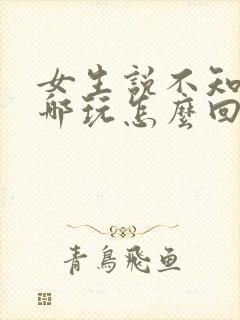 女生說不知
哪玩怎麼回
青鳥飛魚